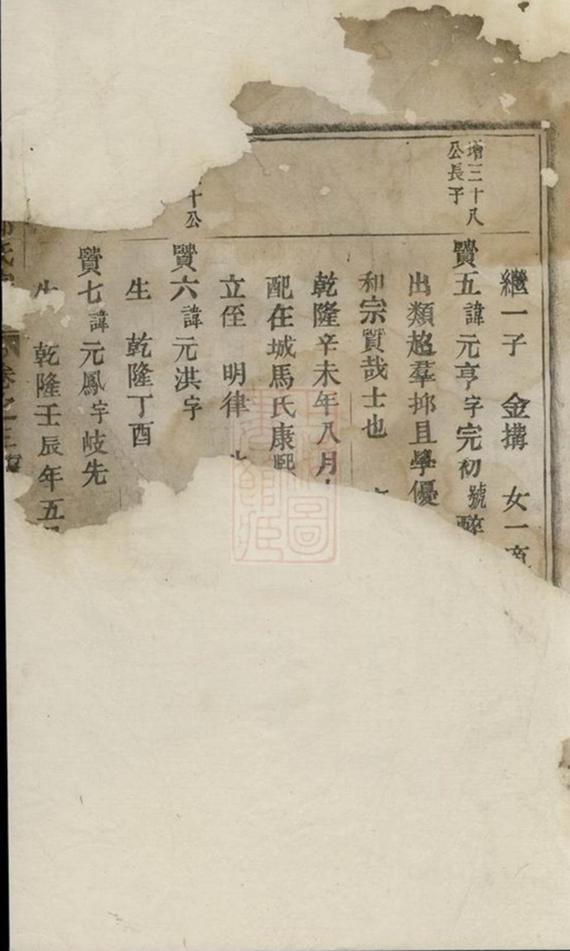 增三十八
公長子
繼一子 金搆 女一適
贒五諱元亨字完初號醉
出類超羣抑且學優
和宗賢哉士也
乾隆辛未年八月
配在城馬氏康熙
立侄 明律
十公
贒六諱元洪字
生 乾隆丁酉
贒七諱元鳳字岐先
生 乾隆壬辰年五月
卷之三